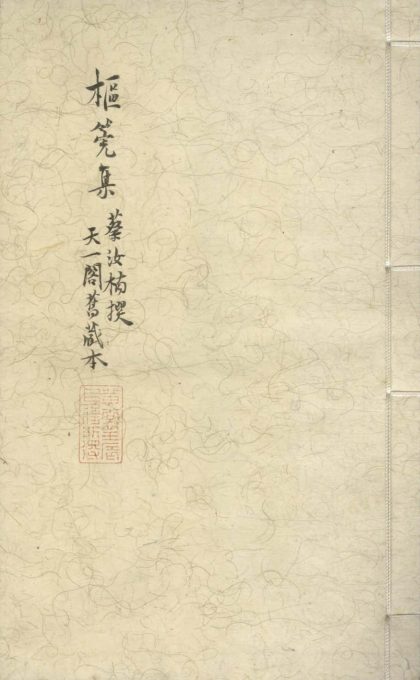 樞筦集
蔡汝楠撰
天一閣舊藏本